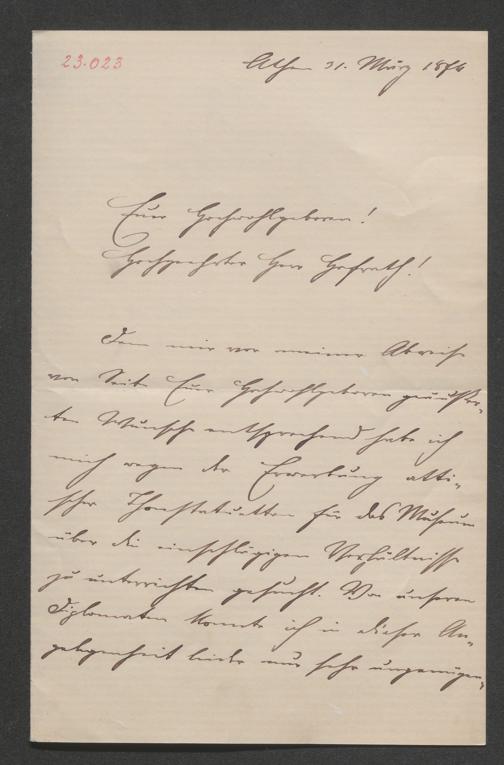 23.023
Athen 31. März 1876
Euer Hochwohlgeboren!
Hochgeehrter Herr Hofrath!
Dem mir vor meiner Abreise
von Seite Euer Hochwohlgeboren geäusser-
ten Wunsche entsprechend habe ich
mich wegen der Erwerbung atti-
scher Thonstatuetten für das Museum
über die einschlägigen Verhältnisse
zu unterrichten gesucht. Von unseren
Diplomaten konnte ich in dieser An-
gelegenheit leider nur sehr ungenügen-